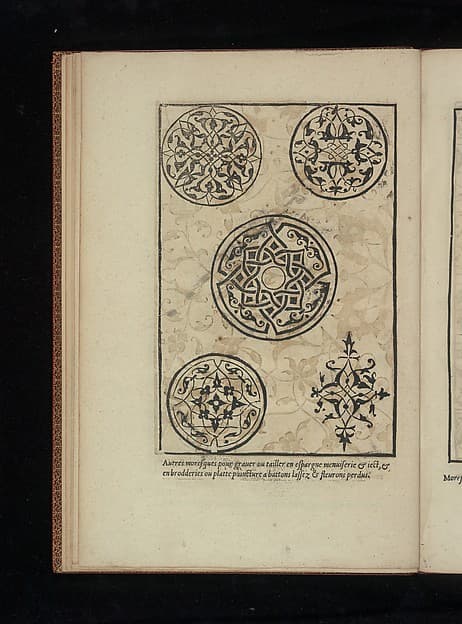 Autres moresques pour grauer ou tailler en espargne menuiserie & iect, &,
en brodderies ou platte paincture a battons lassez & fleurons perduz.
Mores